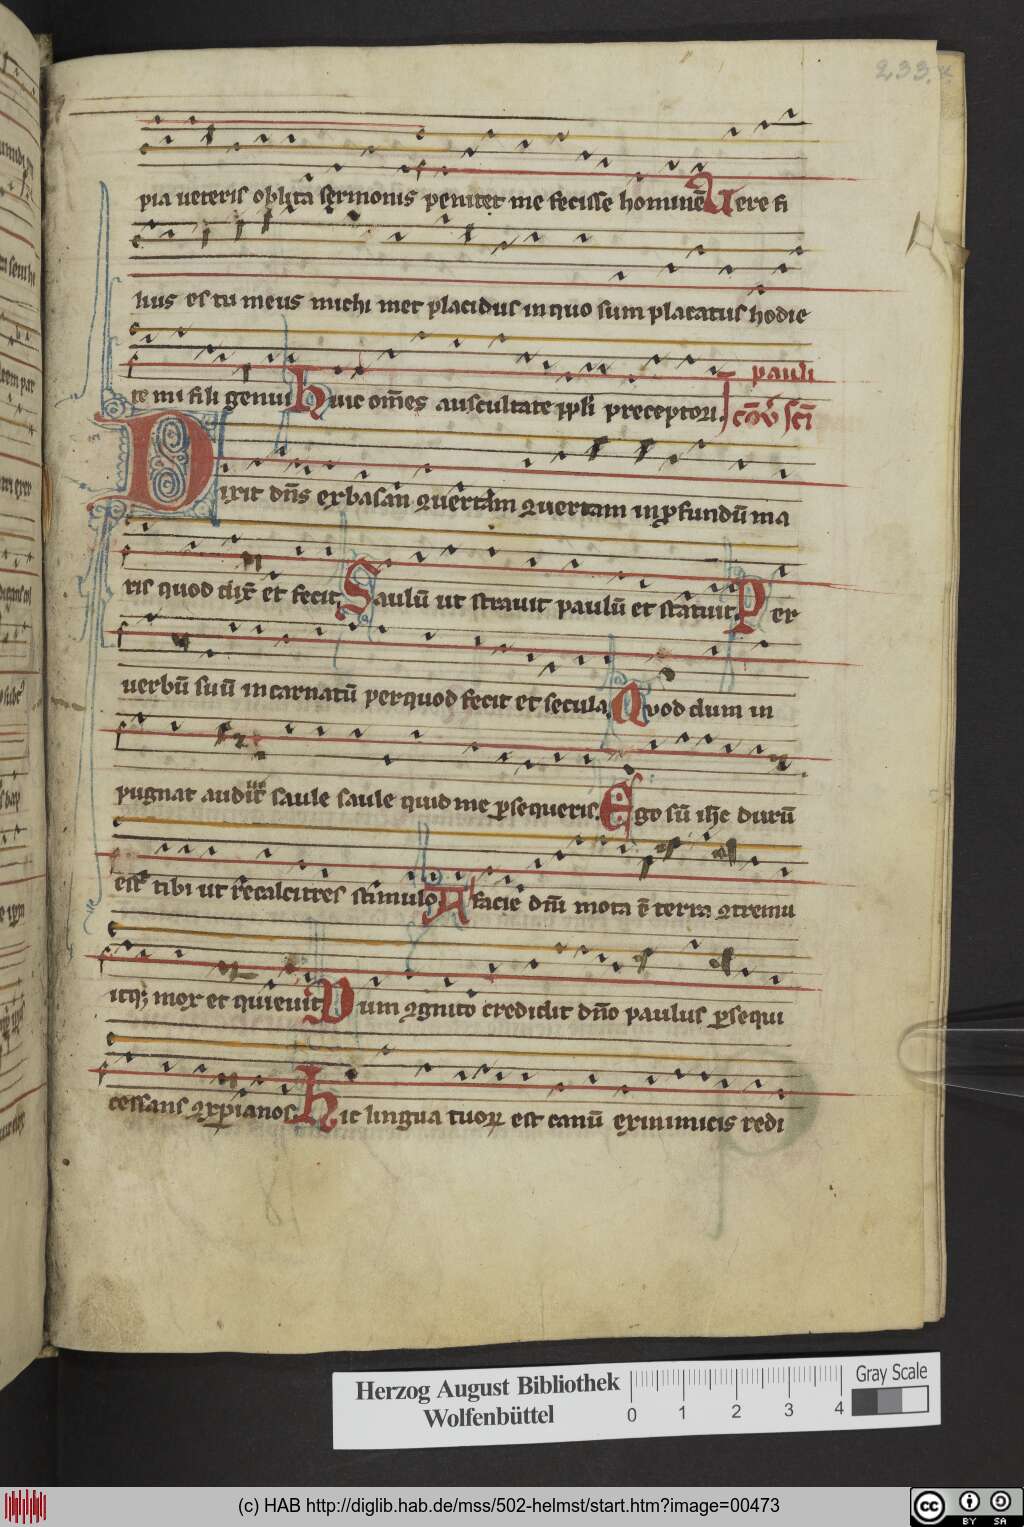 233.
pia ueteris oblita sermonis penitet me fecisse hominē Uere fi
lius es tu meus michi met placidus in quo sum placatus hodie
te mi fili genui huic om̄es auscultate pp̄li preceptori. pauli
cōu͛ sc̄i
Dixit dn̄s ex basan ꝯuertam ꝯuertam in ꝓfundū ma
ris quod dix͛ et fecit Saulū ut strauit paulū et statuit. Per
uerbū suū incarnatū per quod fecit et secula. Quod dum in
pugnat audiit saule saule quid me ꝑsequeris. Ego sū ihc̄ durū
est tibi ut recalcitres stimulo A facie dn̄i mota ē terra ꝯtremu
itq; mox et quieuit Dum ꝯgnito credidit dn̄o paulus ꝑsequi
cessans xp̄ianos. hic lingua tuoꝝ est canū ex inimicis redi
Herzog August Bibliothek
Wolfenbüttel
0 1 2 3 4
Gray Scale
(c) HAB http://diglib.hab.de/mss/502-helmst/start.htm?image=00473
cc BY SA